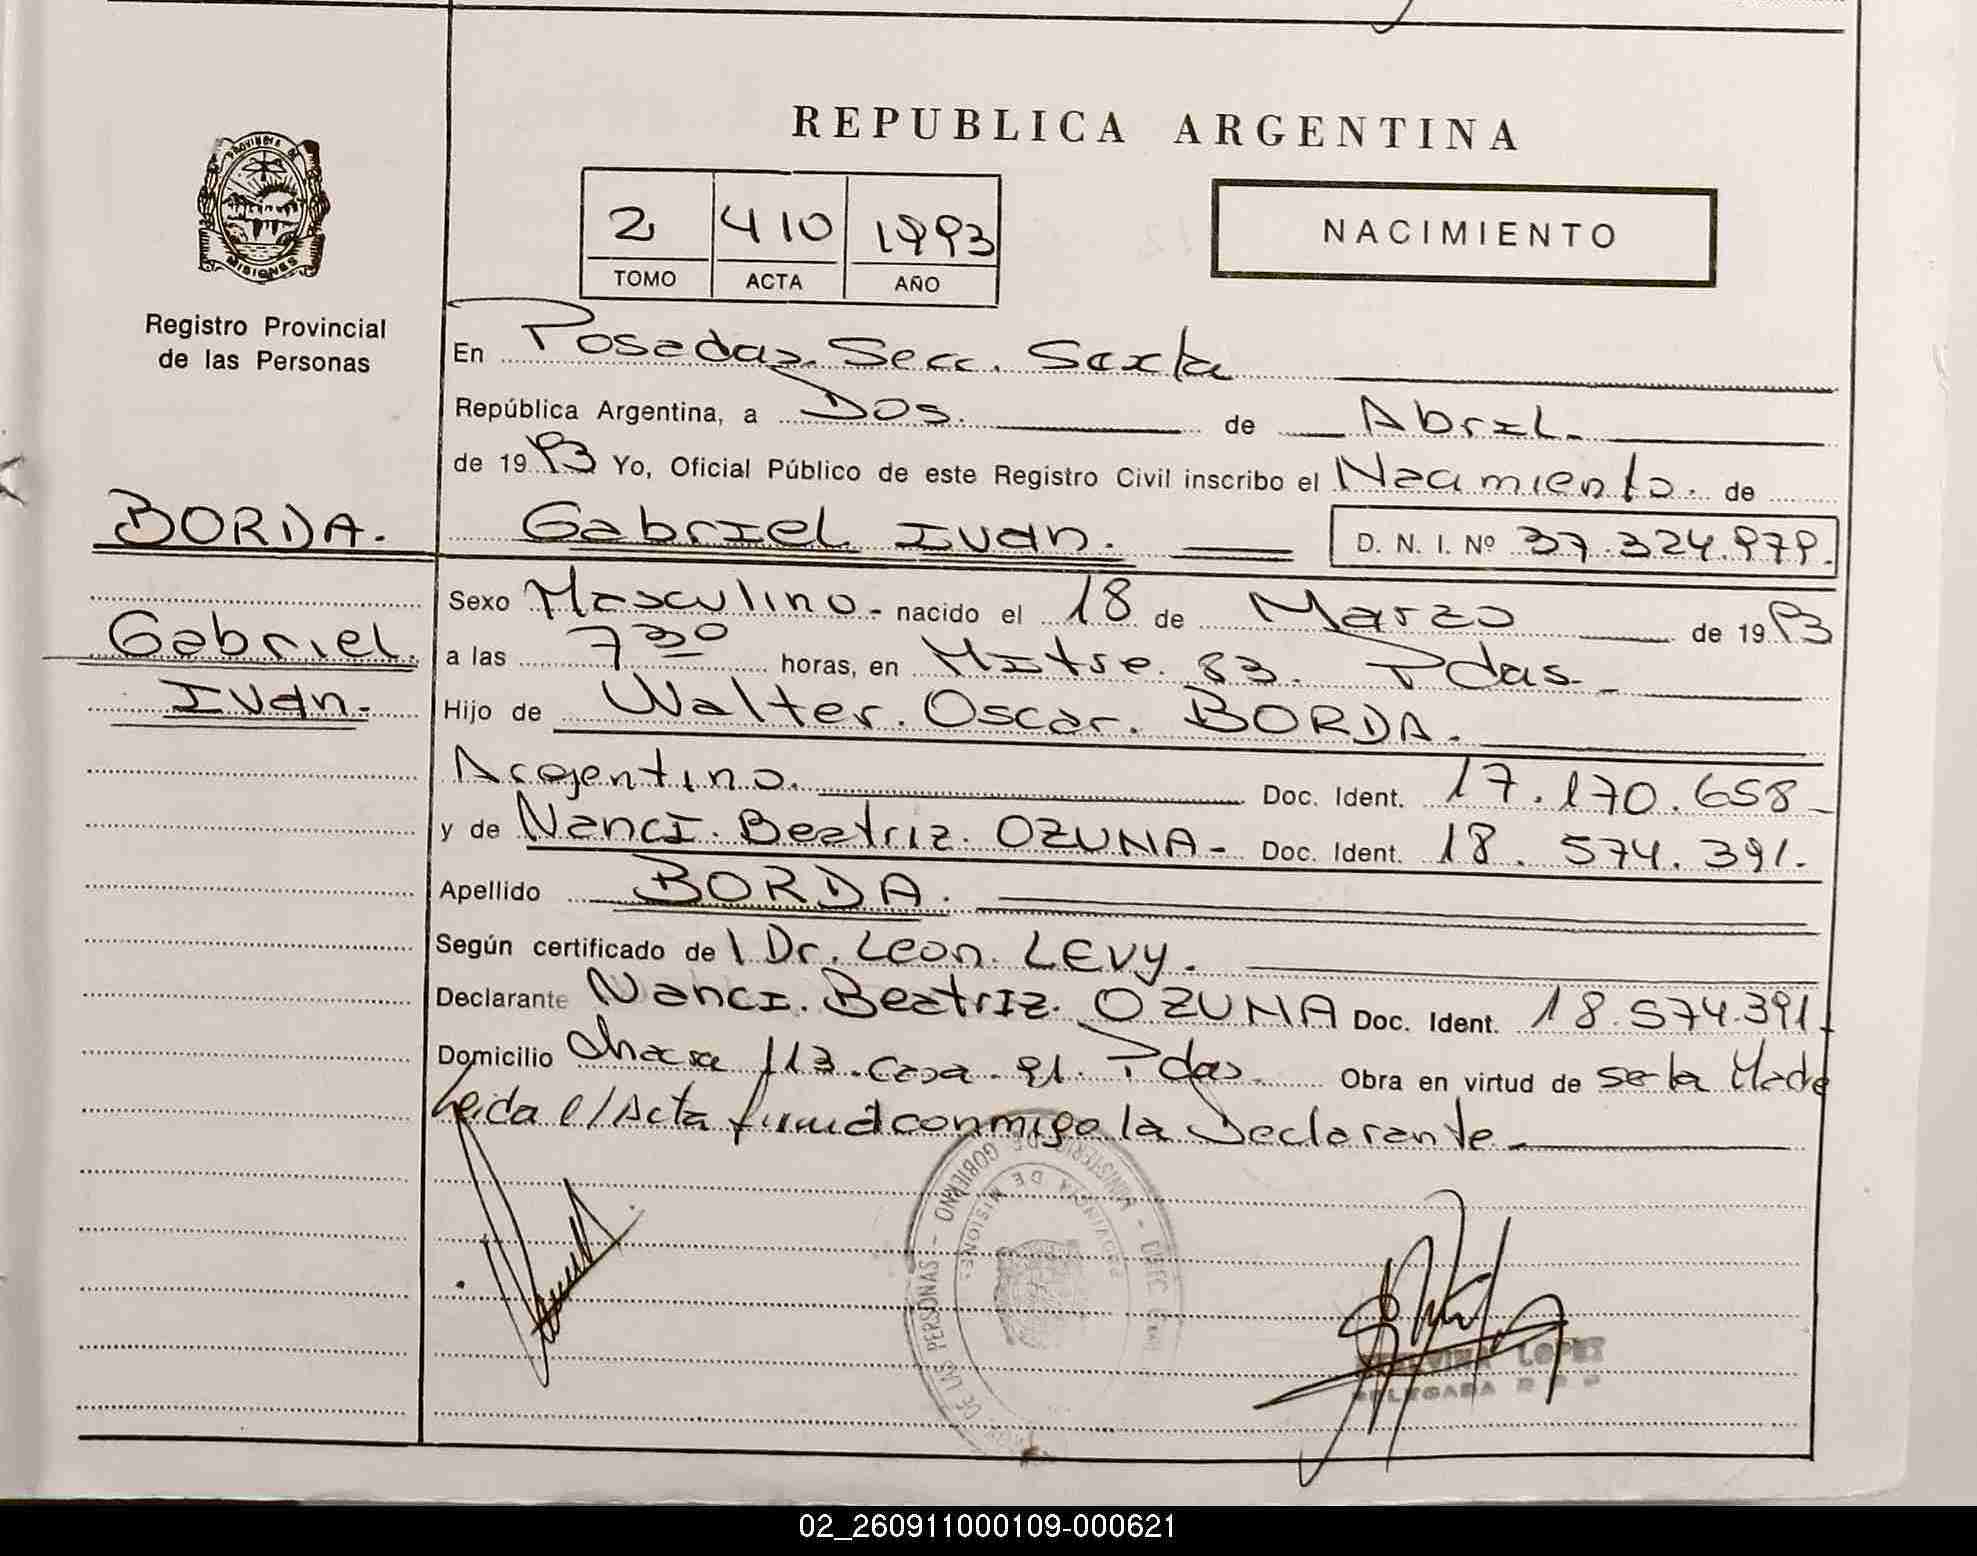 REPUBLICA ARGENTINA
PROVINCIA DE
MISIONES
Registro Provincial
de las Personas
2 410 1993
TOMO ACTA AÑO
NACIMIENTO
En Posadas. Secc. Sexta
República Argentina, a Dos. de Abril.
de 1993 Yo, Oficial Público de este Registro Civil inscribo el Nacimiento. de
BORDA. Gabriel Ivan. D. N. I. Nº 37.324.979.
Gabriel
Ivan.
Sexo Masculino.- nacido el 18 de Marzo de 1993
a las 7 30 horas, en Mitre. 83. Pdas.-
Hijo de Walter. Oscar. BORDA.
Argentino. Doc. Ident. 17.170.658-
y de Nanci. Beatriz. OZUNA- Doc. Ident. 18. 574. 391.
Apellido BORDA.
Según certificado de l Dr. Leon. LEVY.
Declarante Nanci. Beatriz. OZUNA Doc. Ident. 18.574.391.
Domicilio Chacra 113. Casa. 91. Pdas. Obra en virtud de ser la Madre
Leida e/Acta firma conmigo la Declarante-
DE LAS PERSONAS - MINISTERIO DE GOBIERNO -
PROVINCIA DE MISIONES
LOPEZ
DELEGADA
02_260911000109-000621